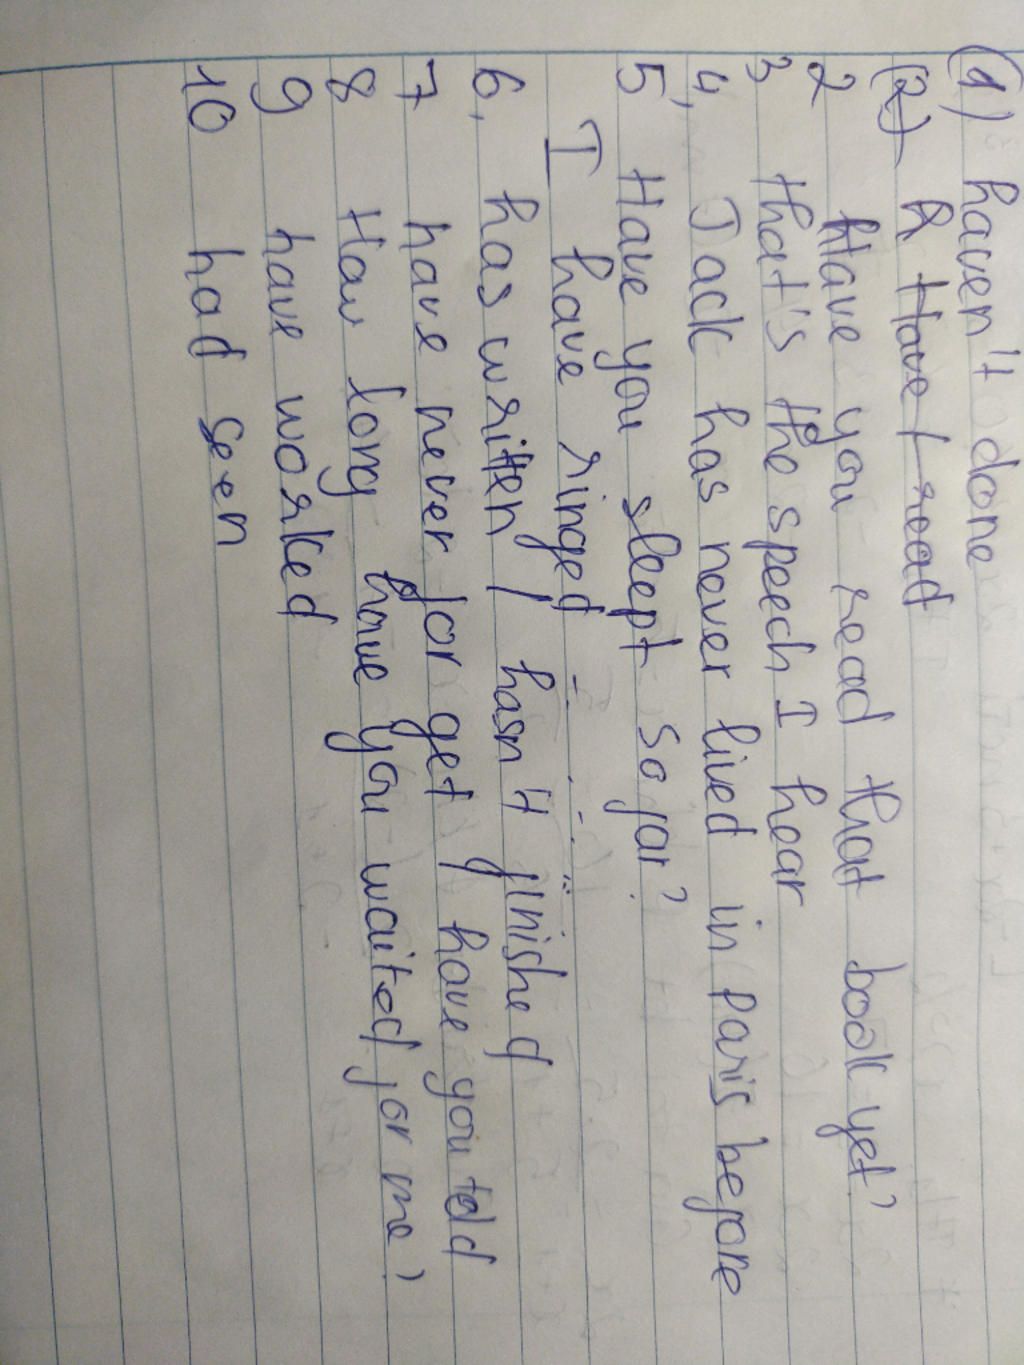 (1) haven't done
(2) R Have / read
2 Have you read that book yet?
3 that's the speech I hear
4, Jack has never lived in Paris before
5 Have you slept so far?
I have ringed - . - ..
6, has written / hasn't finished
7 have never forget / have you told
8 How long have you waited for me?
9 have worked
10 had seen